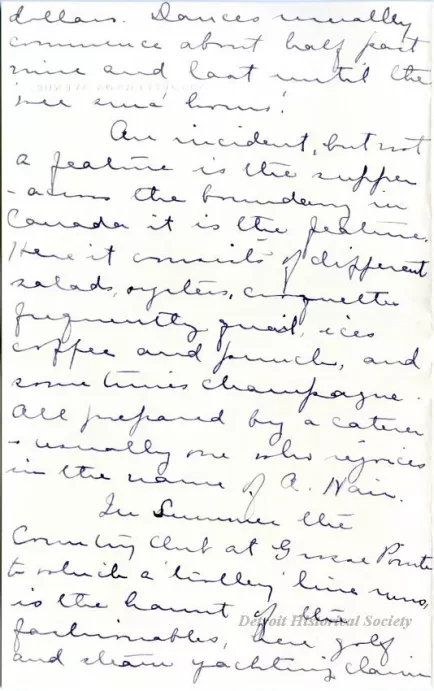 dollars. Dances usually
commence about half past
nine and last until the
'wee sma' hours'.
An incident, but not
a feature is the supper
- across the boundary in
Canada it is the feature.
Here it consists of different
salads, oysters, croquettes
frequently quail, ices
coffee and punch, and
sometimes champagne.
All prepared by a caterer
- usually one who rejoices
in the name of A. Nair.
In Summer the
Country Club at Grosse Pointe
to which a 'trolley' line runs,
is the haunt of the
Detroit Historical Society
fashionables, here golf
and steam yachting claim